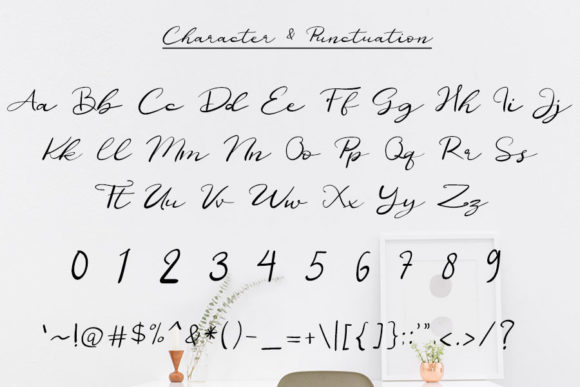 Character & Punctuation
Aa Bb Cc Dd Ee Ff Gg Hh Ii Jj
Kk Ll Mm Nn Oo Pp Qq Rr Ss
Tt Uu Vv Ww Xx Yy Zz
0 1 2 3 4 5 6 7 8 9
`~!@#$%^&*()-_=+\|[{]}:;'"<.>/?